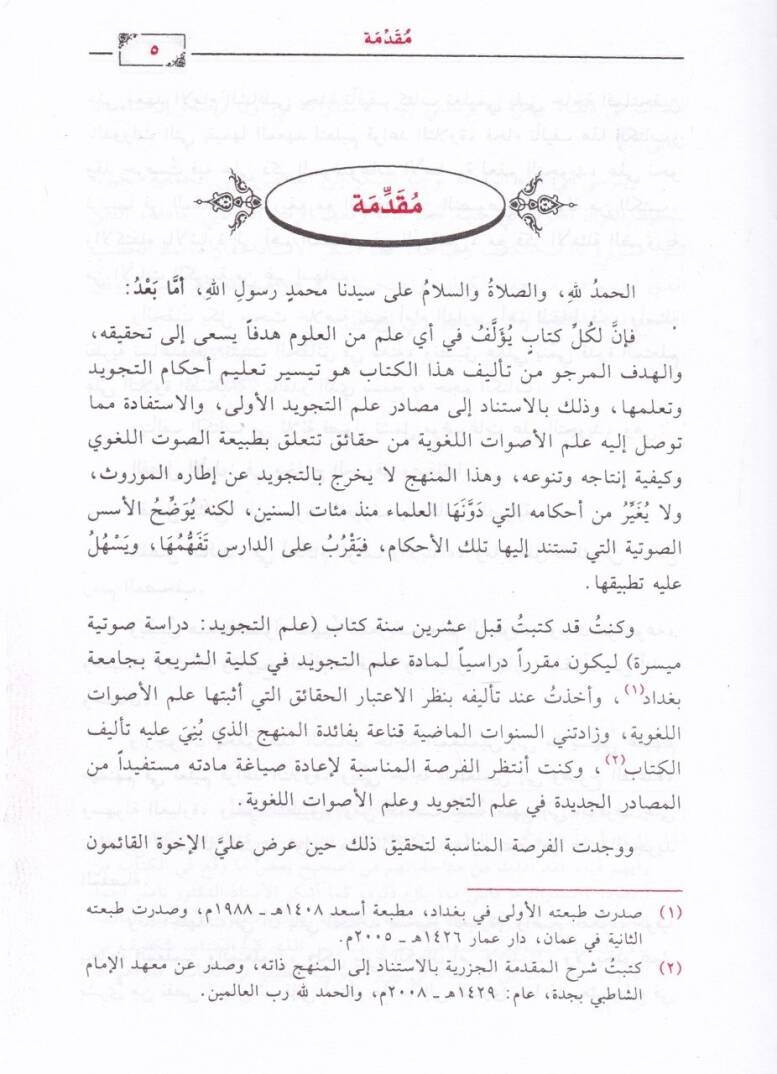 مُقَدِّمَة
٥
مُقَدِّمَة
الحمدُ للهِ، والصلاةُ والسلامُ على سيدنا محمدٍ رسولِ اللهِ، أمَّا بَعْدُ:
فإنَّ لكُلِّ كتاب يُؤَلَّفُ في أي علم من العلوم هدفاً يسعى إلى تحقيقه،
والهدف المرجو من تأليف هذا الكتاب هو تيسير تعليم أحكام التجويد
وتعلمها، وذلك بالاستناد إلى مصادر علم التجويد الأولى، والاستفادة مما
توصل إليه علم الأصوات اللغوية من حقائق تتعلق بطبيعة الصوت اللغوي
وكيفية إنتاجه وتنوعه، وهذا المنهج لا يخرج بالتجويد عن إطاره الموروث،
ولا يُغَيِّرُ من أحكامه التي دَوَّنَهَا العلماء منذ مئات السنين، لكنه يُوَضِّحُ الأسس
الصوتية التي تستند إليها تلك الأحكام، فيَقْرُبُ على الدارس تَفَهُّمُهَا، ويَسْهُلُ
عليه تطبيقها.
وكنتُ قد كتبتُ قبل عشرين سنة كتاب (علم التجويد: دراسة صوتية
ميسرة) ليكون مقرراً دراسياً لمادة علم التجويد في كلية الشريعة بجامعة
بغداد(١)، وأخذتُ عند تأليفه بنظر الاعتبار الحقائق التي أثبتها علم الأصوات
اللغوية، وزادتني السنوات الماضية قناعة بفائدة المنهج الذي بُنِيَ عليه تأليف
الكتاب(٢). وكنت أنتظر الفرصة المناسبة لاعادة صياغة مادته مستفيداً من
المصادر الجديدة في علم التجويد وعلم الأصوات اللغوية.
ووجدت الفرصة المناسبة لتحقيق ذلك حين عرض عليَّ الإخوة القائمون
(١) صدرت طبعته الأولى في بغداد، مطبعة أسعد ١٤٠٨هـ ـ ١٩٨٨م، وصدرت طبعته
الثانية في عمان، دار عمار ١٤٢٦هـ ـ ٢٠٠٥م.
(٢) كتبتُ شرح المقدمة الجزرية بالاستناد إلى المنهج ذاته، وصدر عن معهد الإمام
الشاطبي بجدة، عام: ١٤٢٩هـ ـ ٢٠٠٨م، والحمد لله رب العالمين.